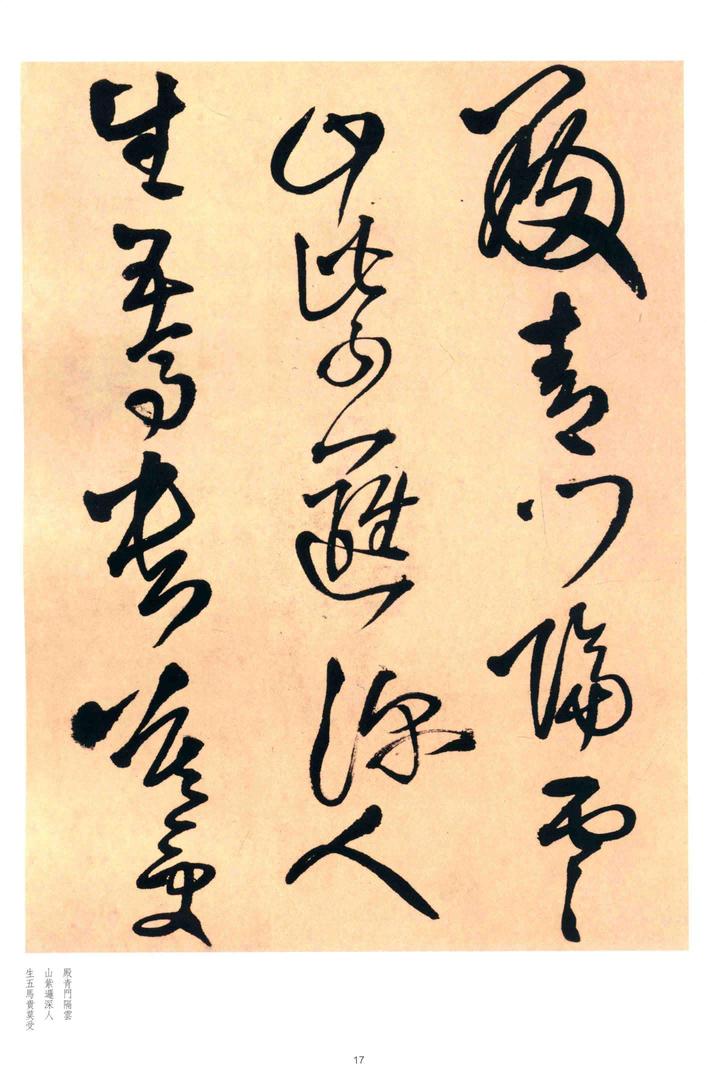 殿青門隔雲
山紫邐深人
生五馬貴莫受
殿青門隔雲
山紫邐深人
生五馬貴莫受
17